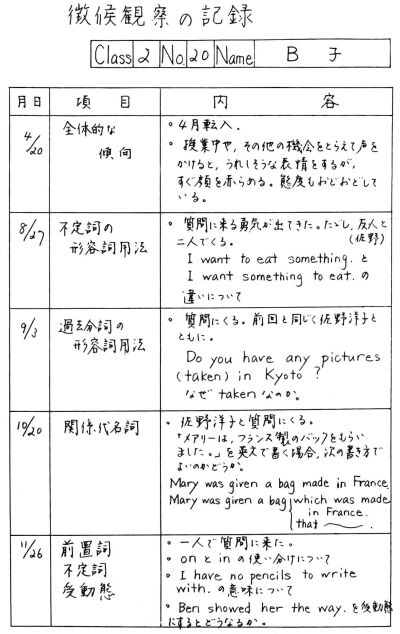 徴候観察の記録
Class 2 No. 20 Name B 子
月日 項目 内容
4/20 全体的な傾向
。4月転入.
。授業中や、その他の機会をとらえて声を
かけると、うれしそうな表情をするが、
すぐ顔を赤らめる。態度もおどおどして
いる。
8/27 不定詞の形容詞用法
。質問に来る勇気が出てきた。ただし、友人と
二人でくる。(佐野)
I want to eat something. と
I want something to eat. の
違いについて
9/3 過去分詞の形容詞用法
。質問にくる。前回と同じく佐野洋子と
ともに。
Do you have any pictures
(taken) in Kyoto ?
なぜ taken なのか。
10/20 関係代名詞
。佐野洋子と質問にくる。
「メアリーは、フランス製のバックをもらい
ました。」を英文で書く場合、次の書き方で
よいのかどうか。
Mary was given a bag made in France.
Mary was given a bag which was made
in France.
that 〜.
11/26 前置詞 不定詞 受動態
。一人で質問に来た。
。on と in の使い分けについて
。I have no pencils to write
with. の意味について
。Ben showed her the way. を受動態
にするとどうなるか。